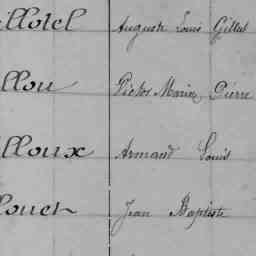 illotel Auguste Louis Gillet
llou Victor Marie Pierre
lloux Armand Louis
louet Jean Baptiste